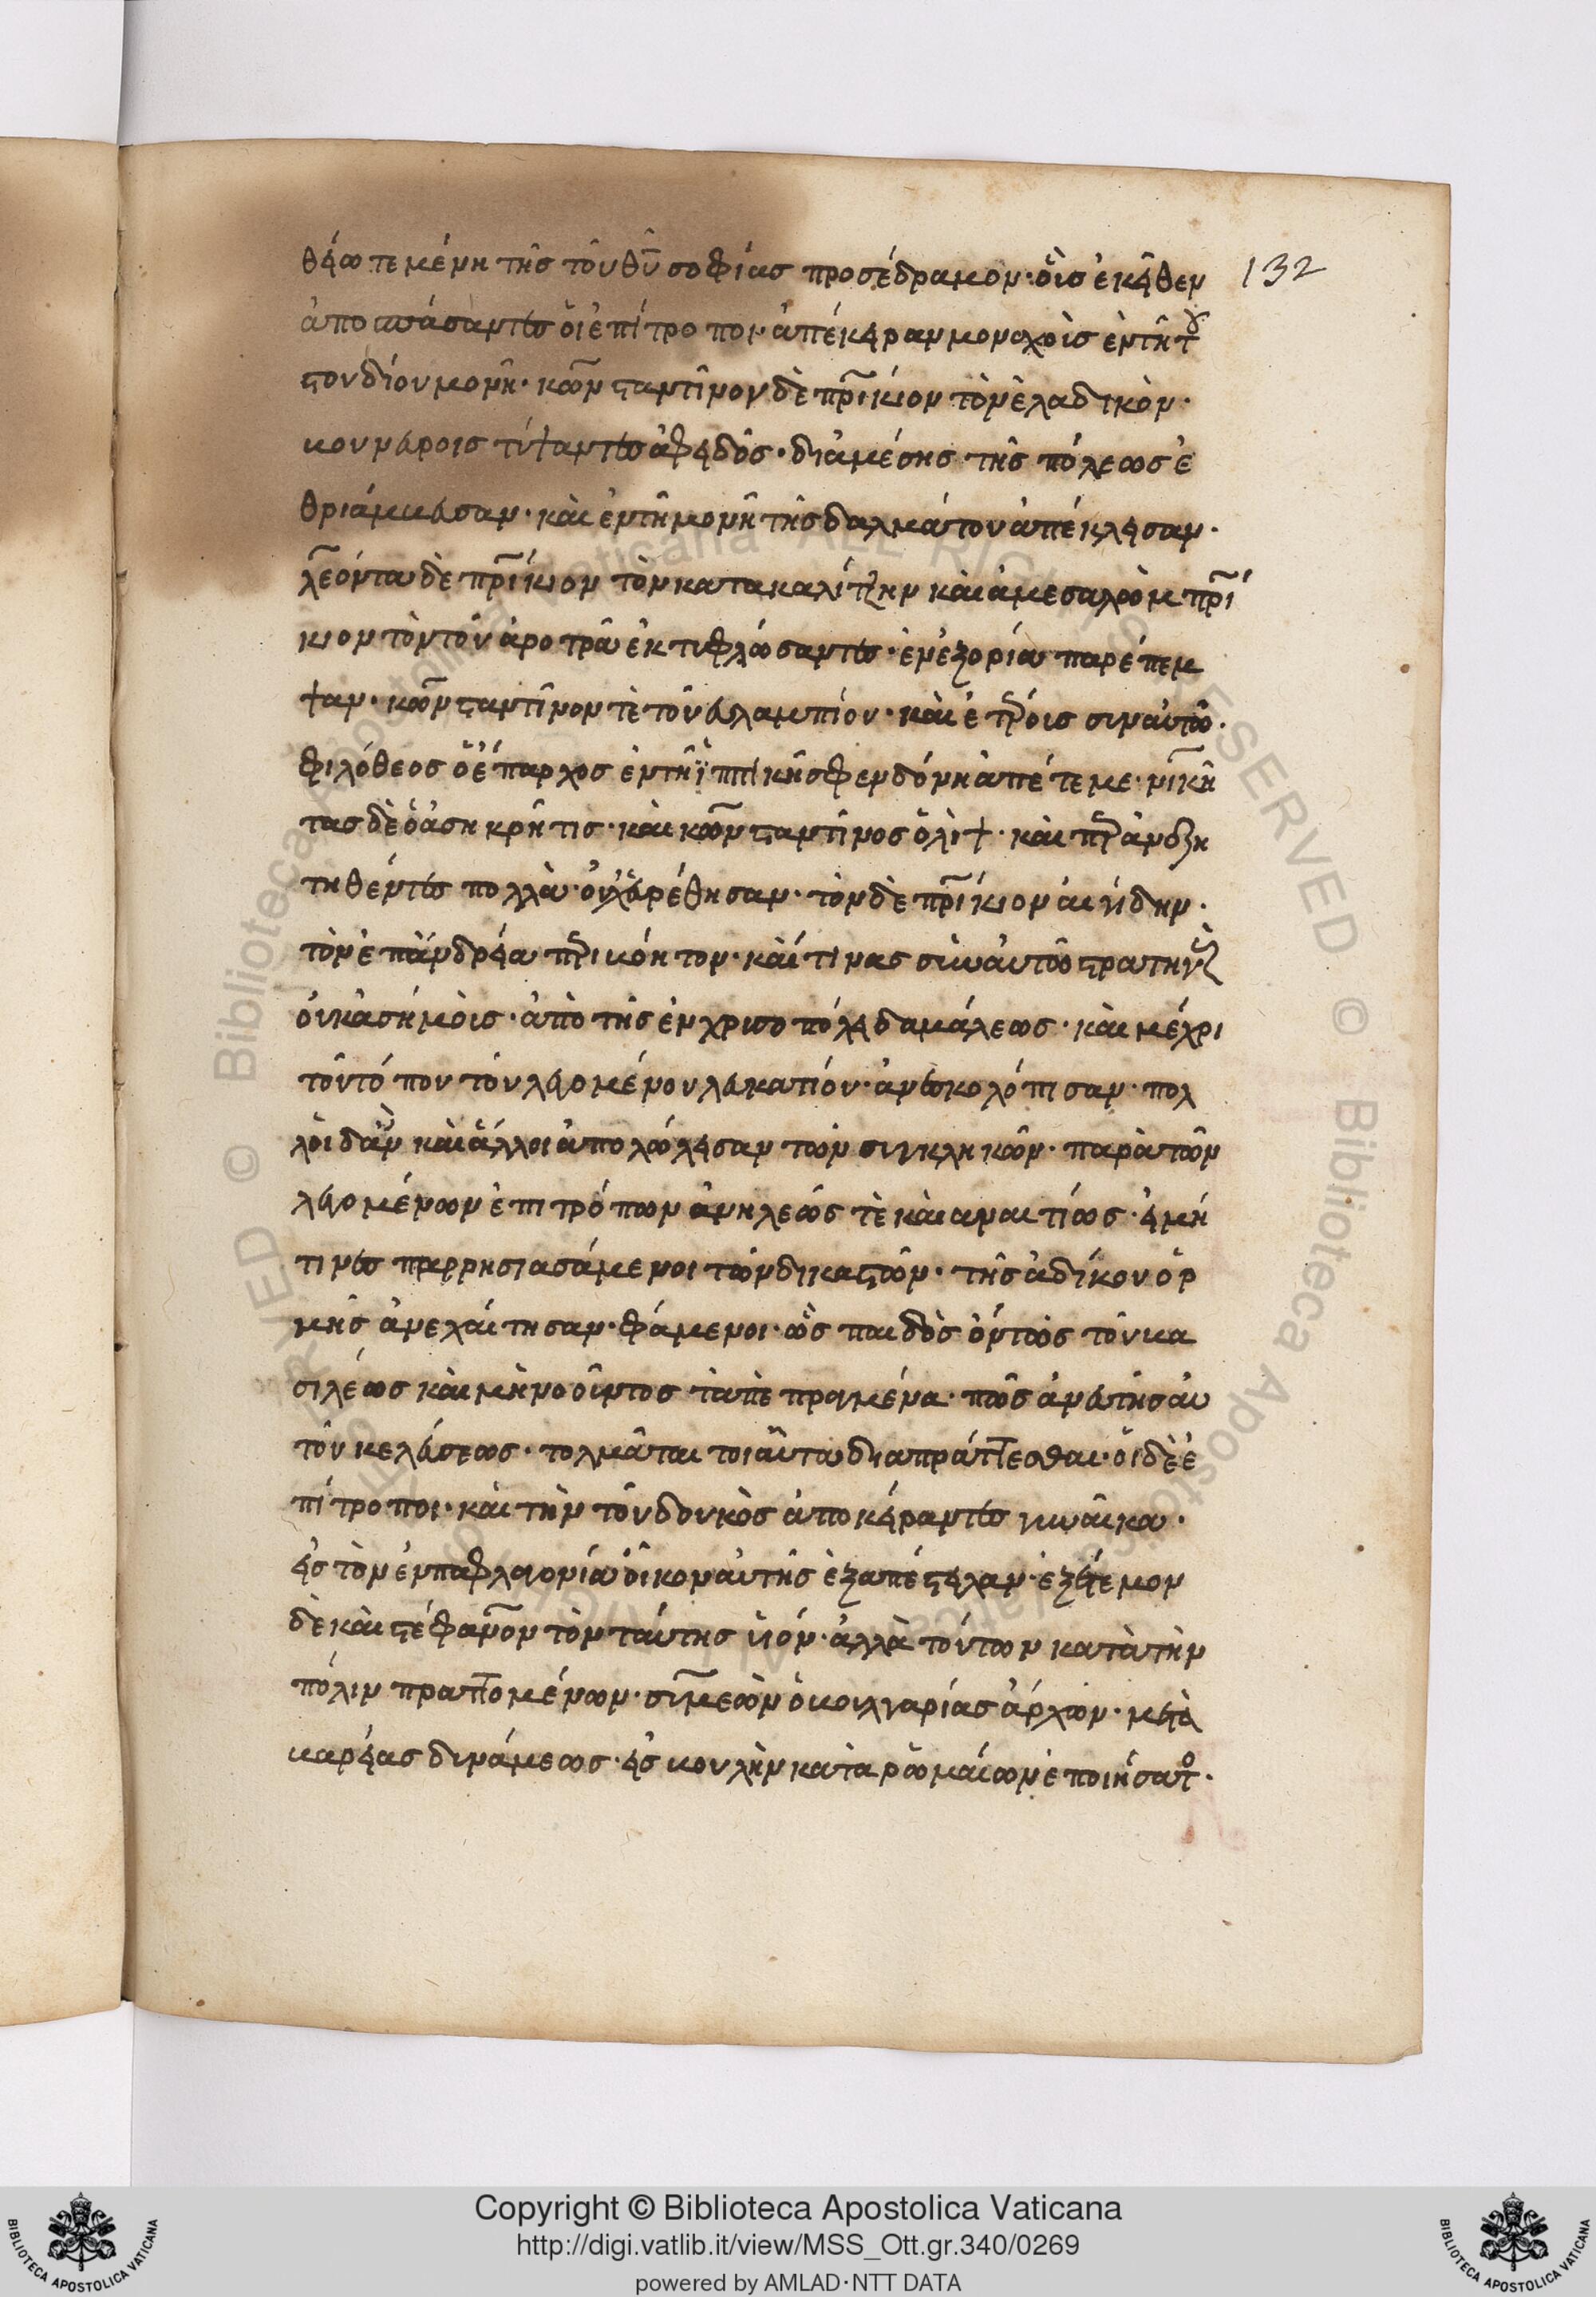 θείω τεμένη τῆς τοῦ θῦ σοφίας προσέδραμον· οἷς ἐκεῖθεν
132
ἀποσπάσαντες οἱ ἐπίτροποι· ἀπέκειραν μοναχοὺς ἐν τῆ τοῦ
στουδίου μονῆ· κωνσταντῖνον δὲ πρίκιον τὸν ἐλαδικὸν·
βουνεύροις τύψαντες ἀφειδῶς· διὰ μέσης τῆς πόλεως ἐ
θριάμβευσαν· καὶ ἐν τῆ μονῆ τῆς δαλμάτου ἀπέκλεισαν·
λέοντα δὲ πρίκιον τὸν κατακαλίτζην καὶ ἀμεσαλὼμ πρί
κιον τὸν τοῦ ἀροτρᾶ ἐκτυφλώσαντες· ἐν ἐξορία παρέπεμ
ψαν· κωνσταντῖνον τὲ τοῦ εὐλαμπίου· καὶ ἑτέροις σιν αὐτῶ·
φιλόθεος ὁ ἔπαρχος ἐν τῆ ἱππικῆ σφενδόνη ἀπέτεμε· νικῆ
τας δὲ ὁ ἀσηκρῆτις· καὶ κωνσταντῖνος ὁ λὶψ· καὶ περ ἀνζη
τηθέντες πολλὰ· οὐχ εὑρέθησαν· τὸν δὲ πρίκιον αἰγίδην·
τὸν ἐπ ἀνδρεία περιβόητον· καί τινας σὺν αὐτῶ στρατηγοῖς
οὐκ ἀσήμοις· ἀπὸ τῆς ἐν χρισοπόλει δαμάλεως· καὶ μέχρι
τοῦ τόπου τοῦ λεγομένου λευκατίου· ἀνεσκολόπισαν· πολ
λοὶ δ ἂν καὶ ἄλλοι ἀπολώλεσαν τῶν σιγκληκῶν· παρὰ τῶν
λεγομένων ἐπιτρόπων ἀνηλεῶς τὲ καὶ αναιτίως· εἰ μή
τινες παρρησιασάμενοι τῶν δικαστῶν· τῆς ἀδίκου ὁρ
μῆς ἀνεχαίτησαν· φάμενοι· ὡς παιδὸς ὄντως τοῦ βα
σιλέως καὶ μὴ νοοῦντος τὰ πεπραγμένα· πῶς ἄνευ τῆς αυ
τοῦ κελεύσεως· τολμᾶται τοιαῦτα διαπράττεσθαι· οἱ δὲ ἐ
πίτροποι· καὶ τὴν τοῦ δουκὸς ἀποκείραντες γυναῖκα·
εἰς τὸν ἐν παφλαγονία οἶκον αὐτῆς ἐξαπέστειλαν· ἐξέτεμον
δὲ καὶ στέφανον τὸν ταύτης υἱόν· ἀλλὰ τούτων κατὰ τὴν
πόλιν πραττομένων· σιμεὼν ὁ βουλγαρίας ἄρχων· μετὰ
βαρείας δινάμεως· εἰς βουλὴν κατὰ ρωμαίων ἐποιήσατο·
Copyright © Biblioteca Apostolica Vaticana
http://digi.vatlib.it/view/MSS_Ott.gr.340/0269
powered by AMLAD·NTT DATA
BIBLIOTECA APOSTOLICA VATICANA
BIBLIOTECA APOSTOLICA VATICANA